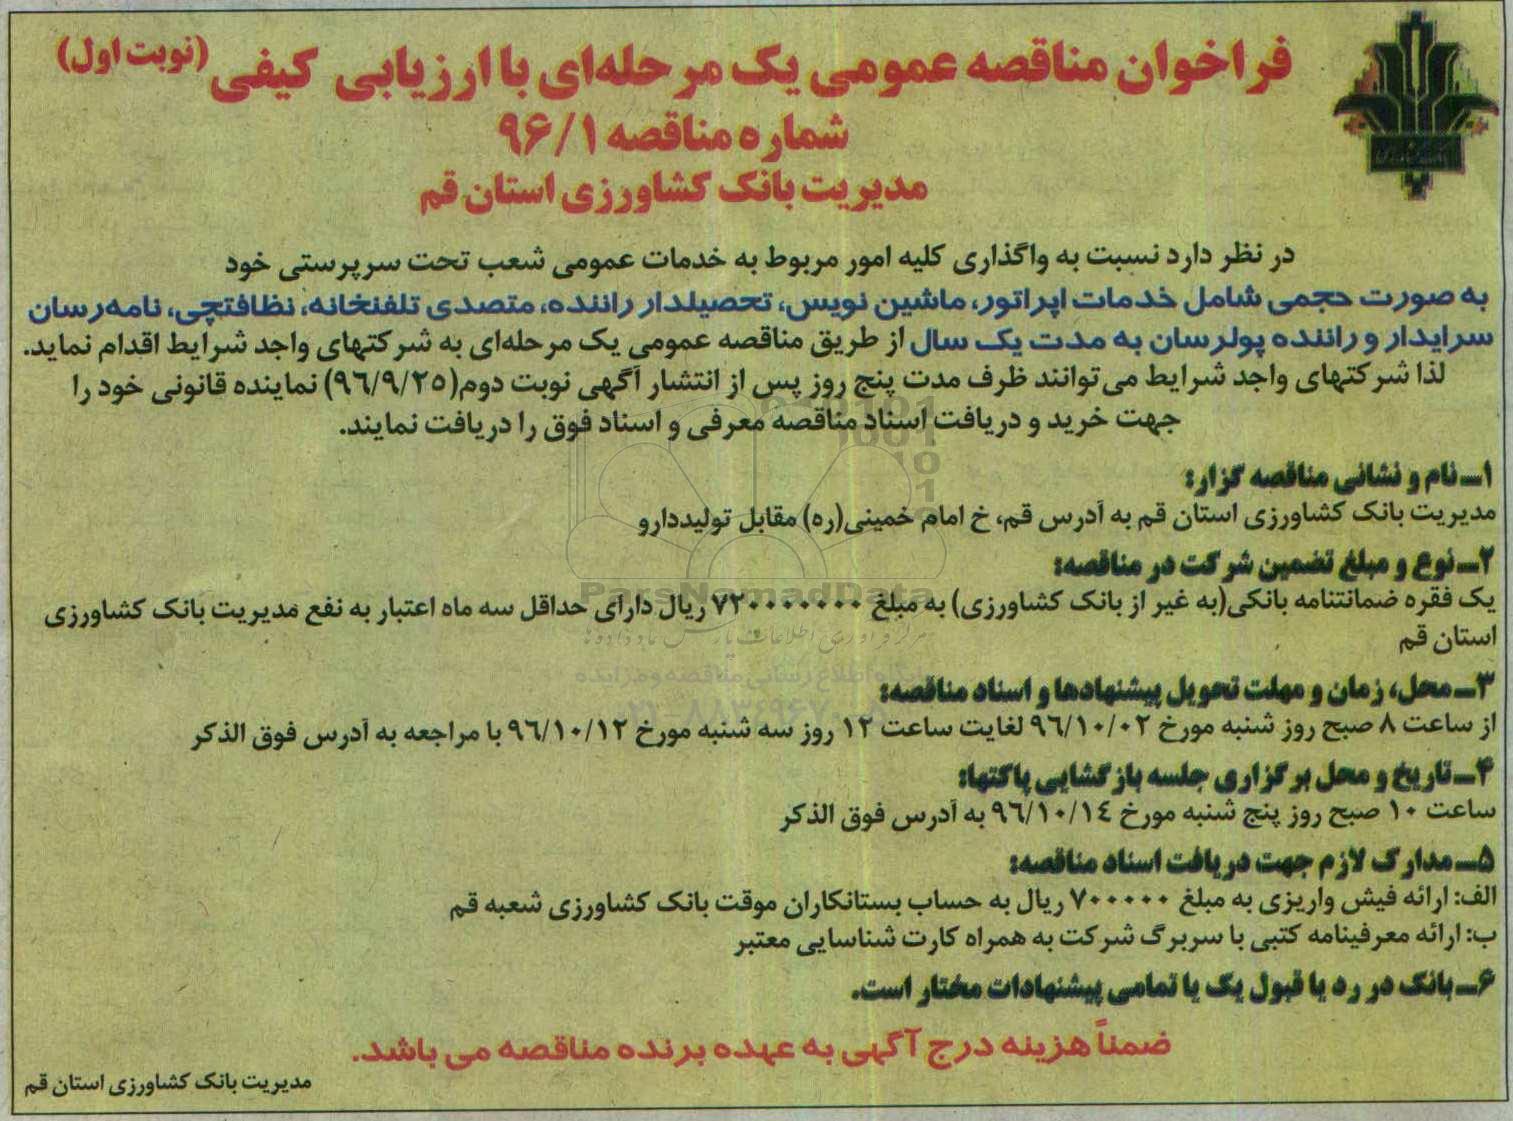 فراخوان مناقصه عمومی یک مرحله‌ای با ارزیابی کیفی (نوبت اول)
شماره مناقصه ۹۶/۱
مدیریت بانک کشاورزی استان قم
در نظر دارد نسبت به واگذاری کلیه امور مربوط به خدمات عمومی شعب تحت سرپرستی خود
به صورت حجمی شامل خدمات اپراتور، ماشین نویس، تحصیلدار راننده، متصدی تلفنخانه، نظافتچی، نامه‌رسان
سرایدار و راننده پولرسان به مدت یک سال از طریق مناقصه عمومی یک مرحله‌ای به شرکتهای واجد شرایط اقدام نماید.
لذا شرکتهای واجد شرایط می‌توانند ظرف مدت پنج روز پس از انتشار آگهی نوبت دوم(۹۶/۹/۲۵) نماینده قانونی خود را
جهت خرید و دریافت اسناد مناقصه معرفی و اسناد فوق را دریافت نمایند.
۱ـ نام و نشانی مناقصه گزار:
مدیریت بانک کشاورزی استان قم به آدرس قم، خ امام خمینی(ره) مقابل تولیددارو
۲ـ نوع و مبلغ تضمین شرکت در مناقصه:
ParsNamadData
یک فقره ضمانتنامه بانکی(به غیر از بانک کشاورزی) به مبلغ ۷۲۰۰۰۰۰۰۰ ریال دارای حداقل سه ماه اعتبار به نفع مدیریت بانک کشاورزی
استان قم
پایگاه اطلاع رسانی مناقصه و مزایده
۳ـ محل، زمان و مهلت تحویل پیشنهادها و اسناد مناقصه:
از ساعت ۸ صبح روز شنبه مورخ ۹۶/۱۰/۰۲ لغایت ساعت ۱۲ روز سه شنبه مورخ ۹۶/۱۰/۱۲ با مراجعه به آدرس فوق الذکر
۴ـ تاریخ و محل برگزاری جلسه بازگشایی پاکتها:
ساعت ۱۰ صبح روز پنج شنبه مورخ ۹۶/۱۰/۱۴ به آدرس فوق الذکر
۵ـ مدارک لازم جهت دریافت اسناد مناقصه:
الف: ارائه فیش واریزی به مبلغ ۷۰۰۰۰۰ ریال به حساب بستانکاران موقت بانک کشاورزی شعبه قم
ب: ارائه معرفینامه کتبی با سربرگ شرکت به همراه کارت شناسایی معتبر
۶ـ بانک در رد یا قبول یک یا تمامی پیشنهادات مختار است.
ضمناً هزینه درج آگهی به عهده برنده مناقصه می باشد.
مدیریت بانک کشاورزی استان قم